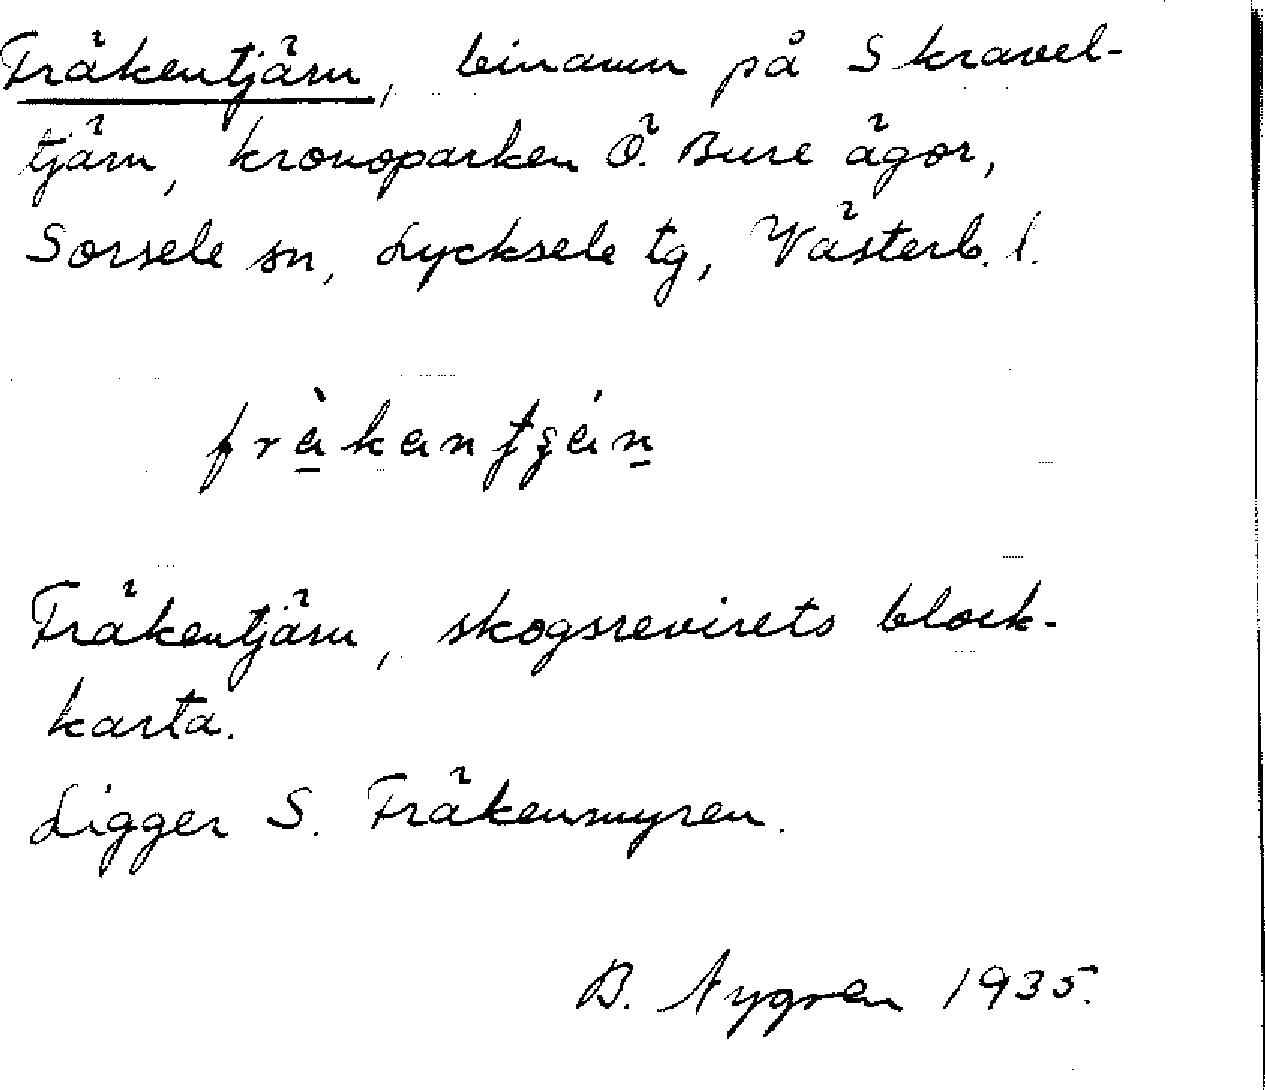 Fräkentjärn, binamn på Skravel-
tjärn, kronoparken Ö. Bure ägor,
Sorsele sn, Lycksele tg, Västerb. l.
Fräkentjärn, skogsrevirets block-
karta.
Ligger S. Fräkenmyren.
B. Nygren 1935.